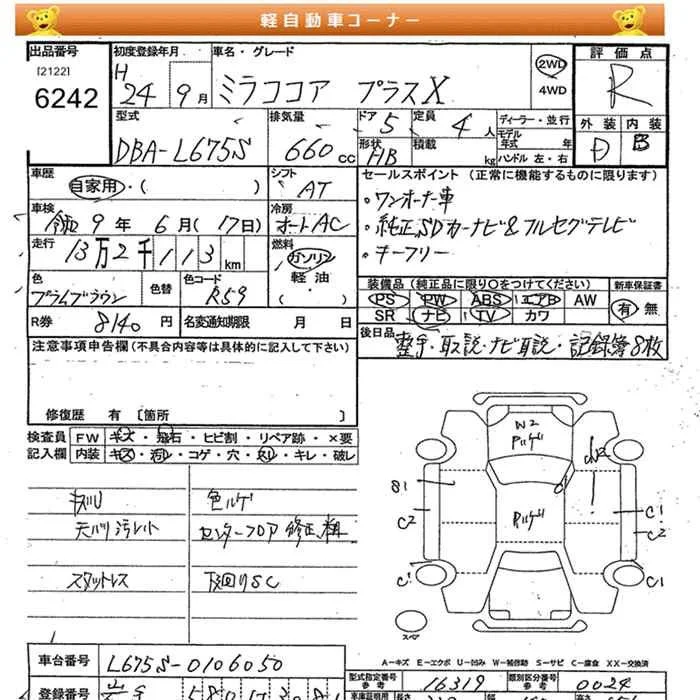 軽自動車コーナー
出品番号 初度登録年月 車名・グレード 評価点
[2122]
6242
H 24 9月 ミラココア プラスX 2WD 4WD R
型式 排気量 ドア 定員 ディーラー・並行 外装 内装
DBA-L675S 660cc 5 4人 モデル年式 年 D B
形状 HB 積載 kg ハンドル 左・右
車歴 シフト セールスポイント(正常に機能するものに限ります)
自家用・( ) AT ・ワンオーナー車
車検 冷房 ・純正SDカーナビ&フルセグテレビ
令和9年6月(17日) オートAC ・キーフリー
走行 燃料
13万2千113km ガソリン 軽油・( )
色 色替 色コード 装備品(純正品に限り○をつけてください) 新車保証書
プラムブラウン R59 PS PW ABS エアB AW 有・無
SR ナビ TV カワ
R券 8140円 名変通知期限 月 日 後日品
整手・取説・ナビ取説・記録簿8枚
注意事項申告欄(不具合内容等は具体的に記入して下さい)
修復歴 有 [箇所 ]
検査員 FW キズ・飛石・ヒビ割・リペア跡・×要
記入欄 内装 キズ・汚レ・コゲ・穴・スレ・キレ・破レ
キズU 色ハゲ
天バリ汚レ
センターフロア修正
スタットレス 下回りSC
W2
S1
C2
C1
C2
C1
スペア
A-キズ E-エクボ U-凹み W-補修跡 S-サビ C-腐食 XX-交換済
車台番号 L675S-0106050
型式指定番号 参考 16319 類別区分番号 参考 0024
登録番号 岩手